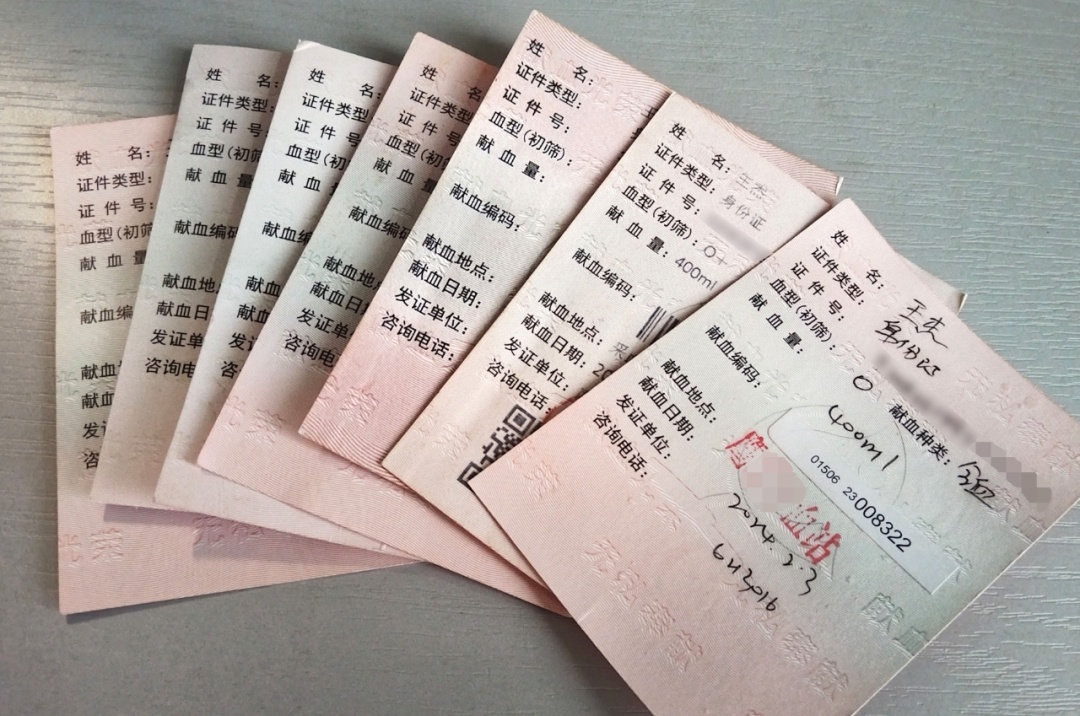 姓 名:
证件类型:
证 件 号:
血型(初筛
献 血 量
献血编
献血
献血
发证
咨
姓 名:
证件类型:
证 件 号
血型(初筛
献 血 量
献血编码
献血地
献血日
发证单
咨询电
姓 名:
证件类型
证 件 号
血型(初筛
献 血
献血编
献血地
献血日
发证单位
咨询电
姓 名:
证件类型:
证 件 号
血型(初
献 血
献血编
献血地点
献血日
发证单
咨询电话
姓 名:
证件类型:
证 件 号:
血型(初筛):
献 血 量:
献血编码:
献血地点:
献血日期:
发证单位:
咨询电话:
姓 名: 王杰
证件类型: 身份证
证 件 号:
血型(初筛): O+
献 血 量: 400ml
献血编码:
献血地点: 采
献血日期: 20
发证单位:
咨询电话:
姓 名: 王杰
证件类型: 身份证
证 件 号:
血型(初筛): O 献血种类: 全血
献 血 量: 400ml
献血编码: 01506 23008322
献血地点: 鹰 血站
献血日期: 2024.2.3
发证单位:
咨询电话: 6423016
无偿献血
无私奉献